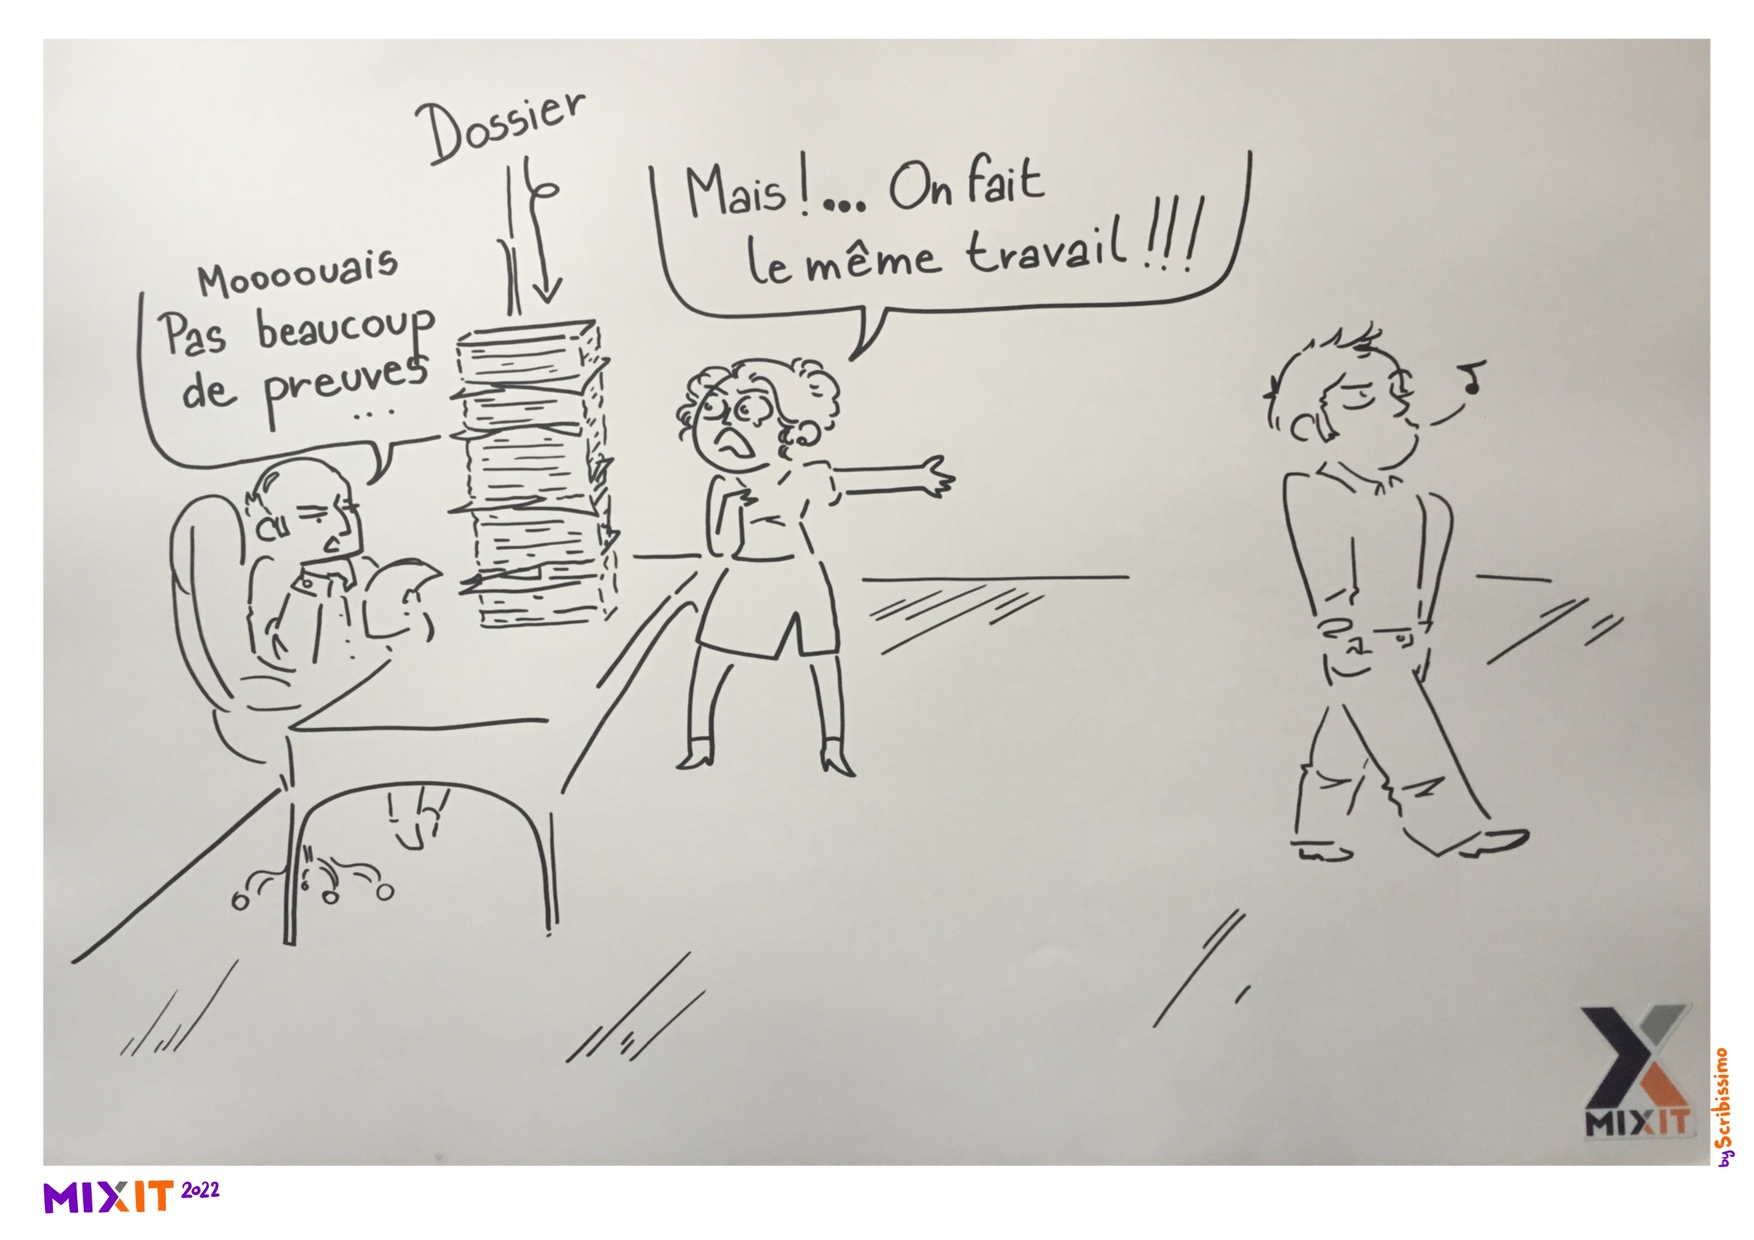 Dossier
Moooouais
Pas beaucoup
de preuves
...
Mais!... On fait
le même travail !!!
MIXIT
by Scribissimo
MIXIT 2022